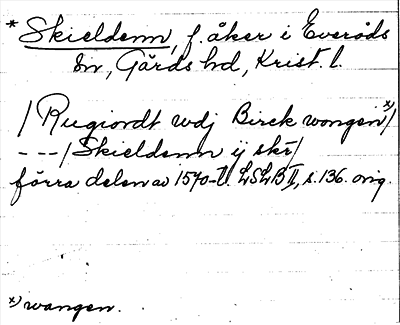 * Skieldenn, f. åker i Everöds
sn, Gärds hd, Krist. l.
/ Rugiordt wdj Birck wongen x)/
---/ Skieldenn ij skr/
förra delen av 1570-t. LSLB II, s. 136. orig.
x) wangen.